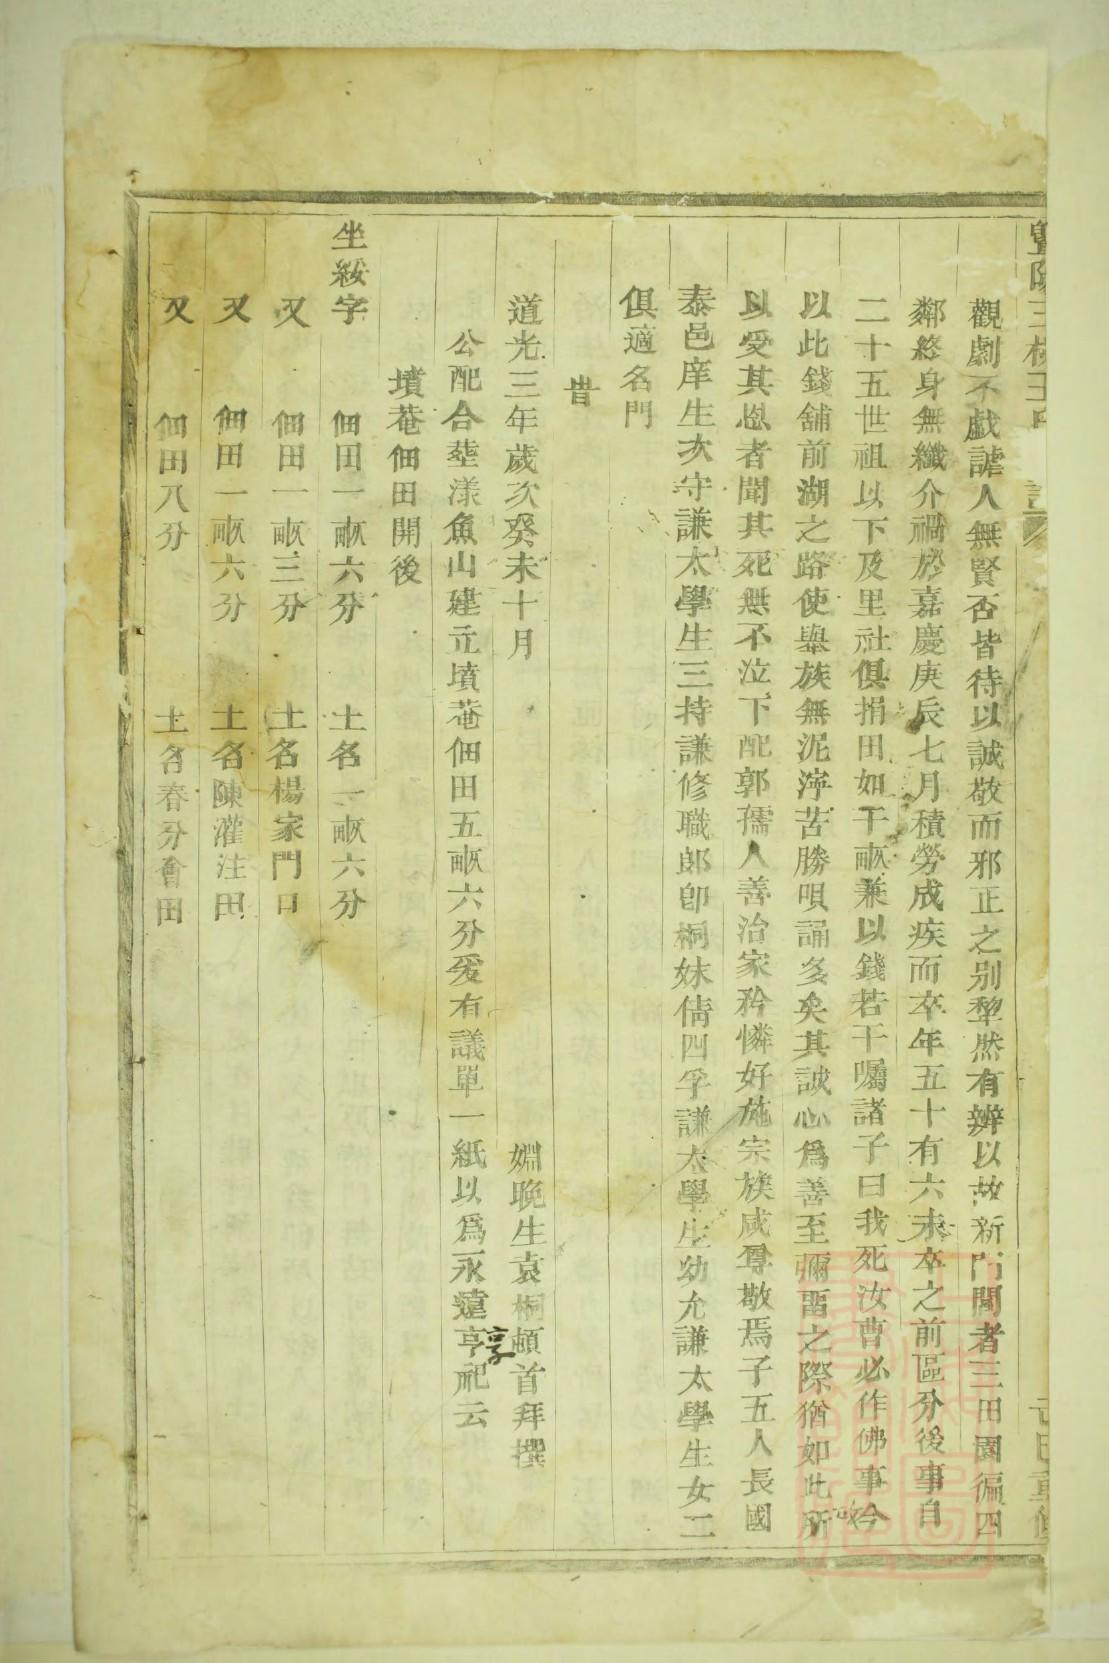 觀劇不戲謔人無賢否皆待以誠敬而邪正之别犂然有辨以故新門閭者三田園徧四
鄰終身無纖介禍於嘉慶庚辰七月積勞成疾而卒年五十有六未卒之前區分後事自
二十五世祖以下及里社俱捐田如干畝兼以錢若干囑諸子曰我死汝曹必作佛事今
以此錢舖前湖之路使舉族無泥濘苦勝唄誦多矣其誠心爲善至彌畱之際猶如此所
以受其恩者聞其死無不泣下配郭孺人善治家矜憐好施宗族咸尊敬焉子五人長國
泰邑庠生次守謙太學生三持謙修職郎卽桐妹倩四孚謙太學生幼允謙太學生女二
俱適名門
旹
道光三年歲次癸未十月 姻晚生袁桐頓首拜撰
公配合塟漾魚山建立墳菴佃田五畝六分爰有議單一紙以爲永遠亨祀云
享
墳菴佃田開後
坐紱字 佃田一畝六分 土名一畝六分
又 佃田一畝三分 土名楊家門口
又 佃田一畝六分 土名陳灌注田
又 佃田八分 土名春分會田